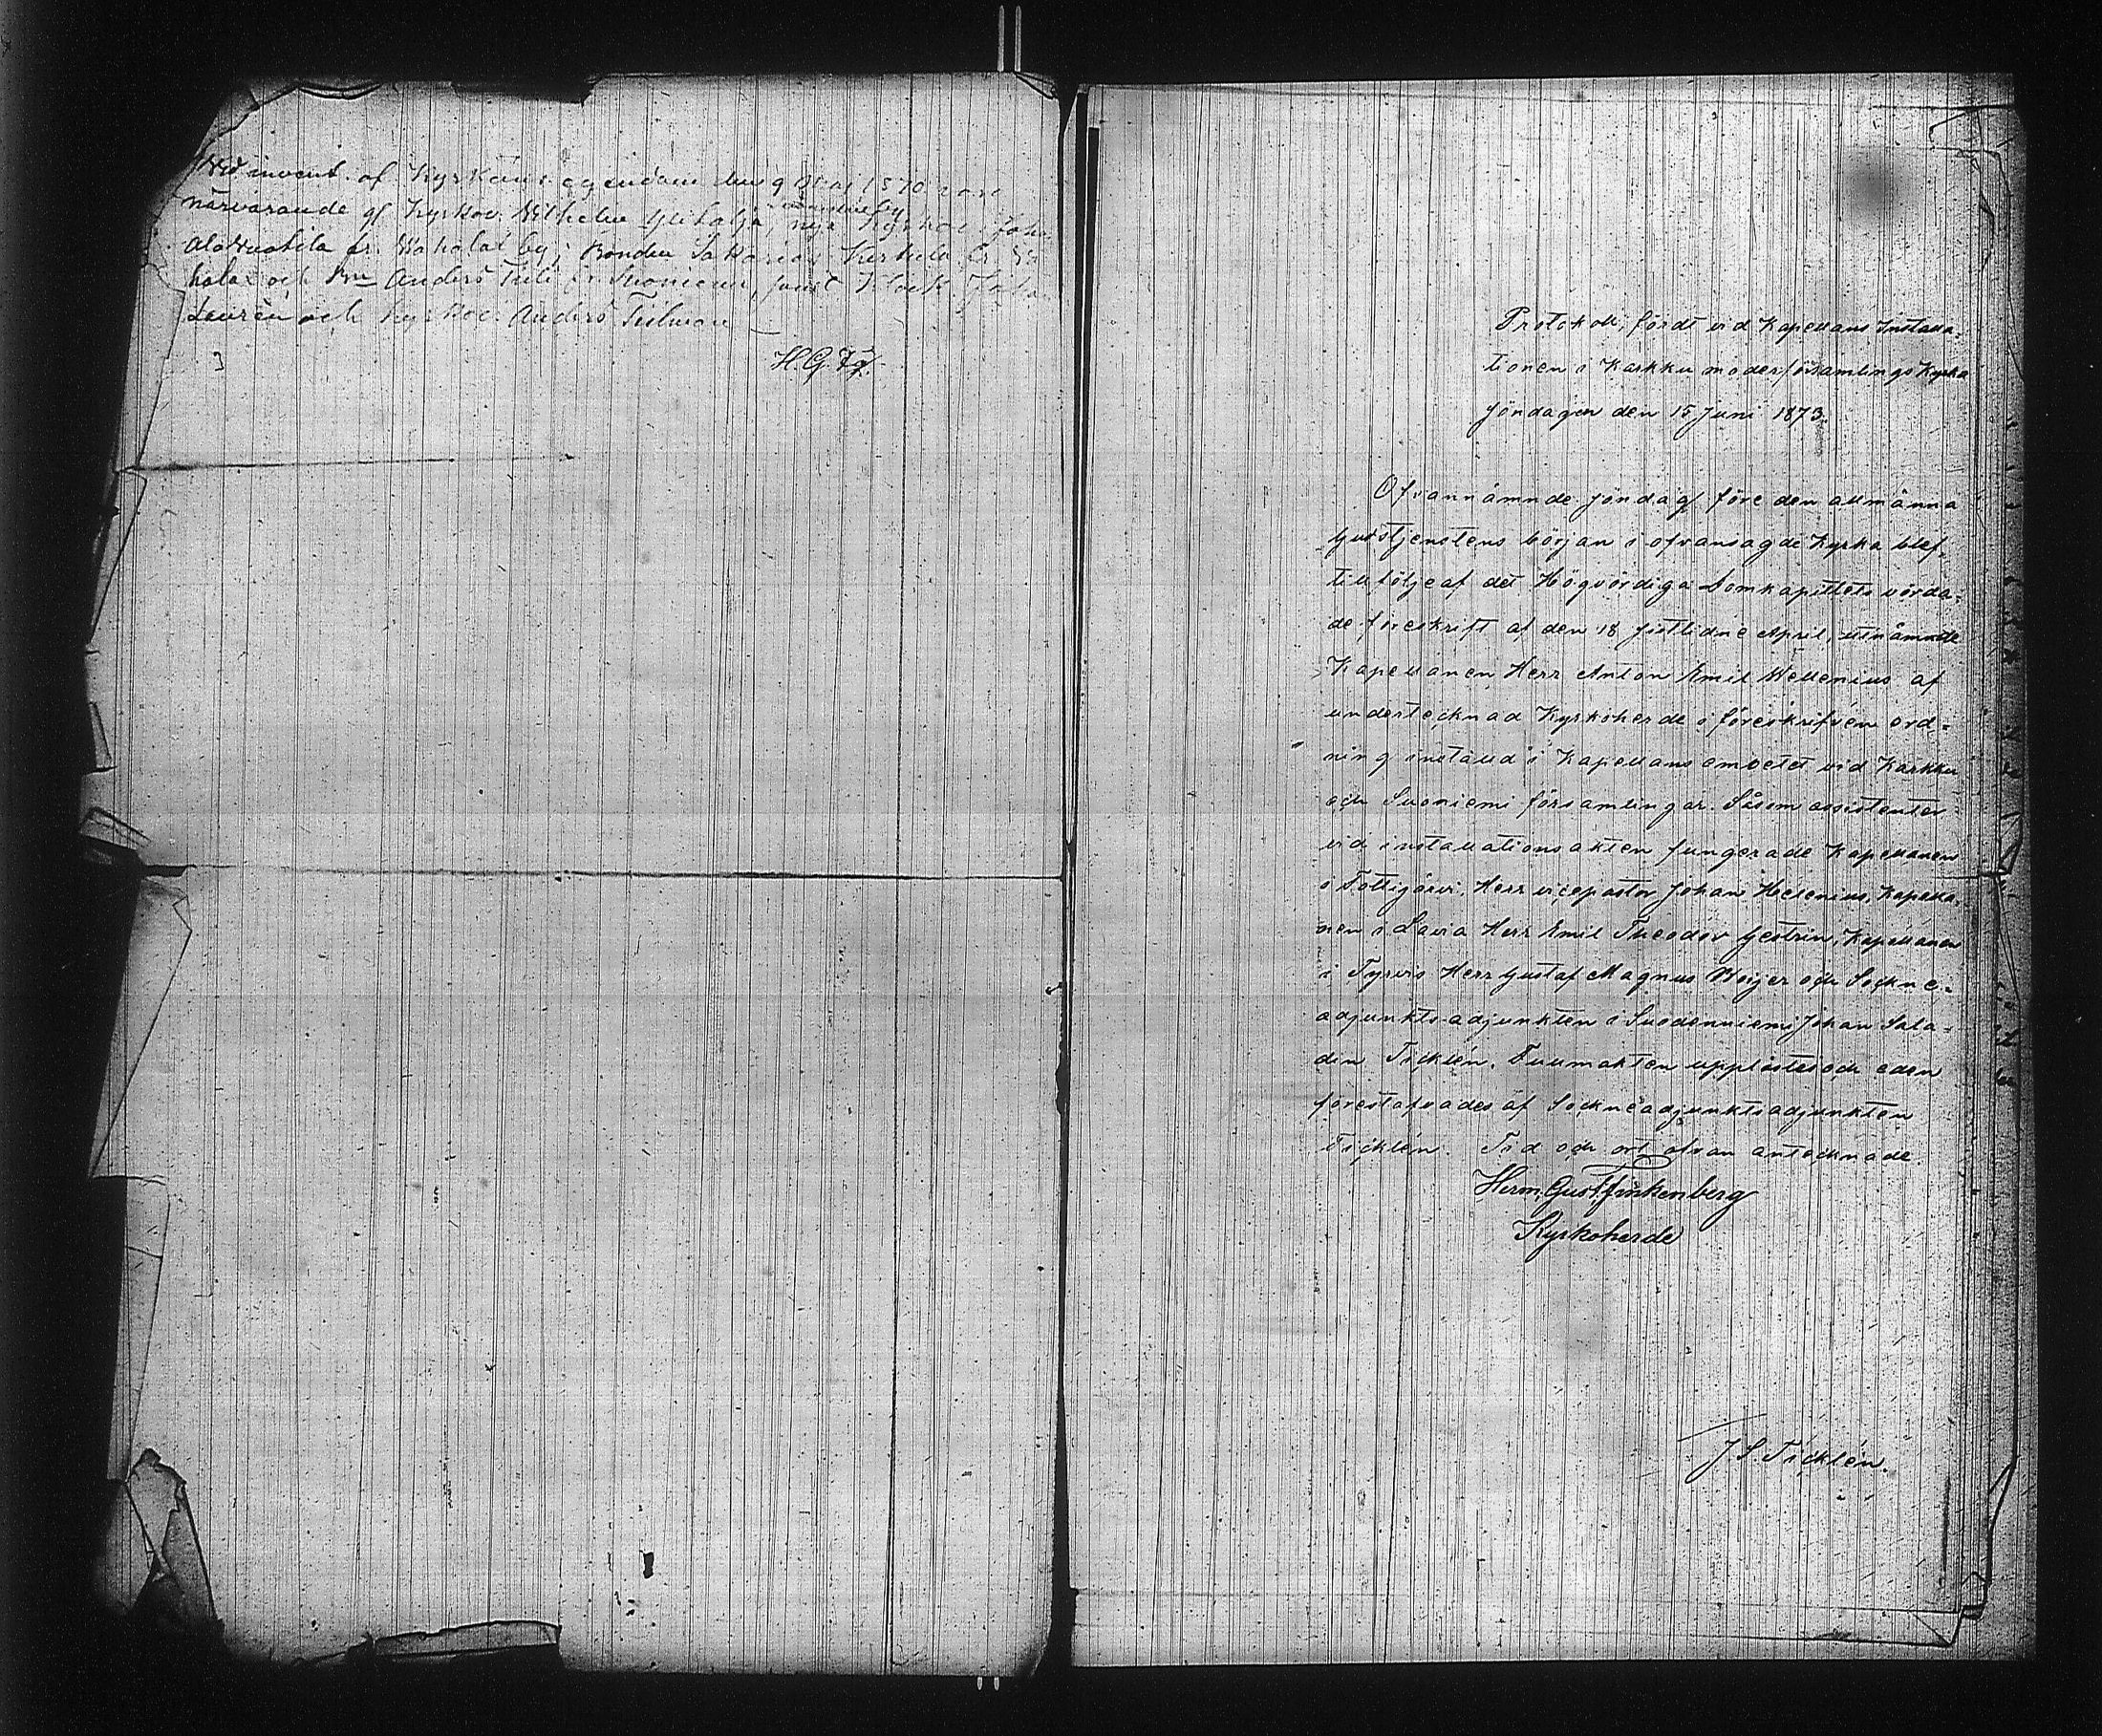 Vid invent. af Kyrkans egendom den 9 Maj 1870 voro
närvarande gl Kyrkov. Wilhelm Yli, nya Kyrkov. Joh
Ala fr. by; Bonden Sakarias fr.
och Bn Anders Tuli fr Suoniemi, samt Klock.
Laurén och Kyrkov. Anders
H. G.
Protokoll, fördt vid Kapellans Installa-
tionen i Karkku moderförsamlings Kyrka
söndagen den 15 Juni 1873.
Ofvannämnde söndag före den allmänna
gudstjenstens början i ofvansagde Kyrka blef,
till följe af det Högvördiga Domkapitlets vörda-
de föreskrift af den 18 sistlidne April, utnämnde
Kapellanen Herr Anton Emil Wellenius af
undertecknad Kyrkoherde i föreskrifven ord-
ning installd i Kapellans embetet vid Karkku
och Suoniemi församlingar. Såsom assistenter
vid installationsakten fungerade Kapellanen
i Tottijärvi, Herr vicepastor Johan Helenius, Kapella-
nen i Lavia Herr Emil Theodor Gestrin, Kapellanen
i Tyrvis Herr Gustaf Magnus Weijer och Sockne-
adjunkts-adjunkten i Suodenniemi Johan Sala-
din Ticklén. Fullmakten upplästes och eden
förestafvades af Sockneadjunktsadjunkten
Ticklén. Tid och ort ofvan antecknade.
Herm. Gust. Finkenberg
Kyrkoherde
J. S. Ticklén.